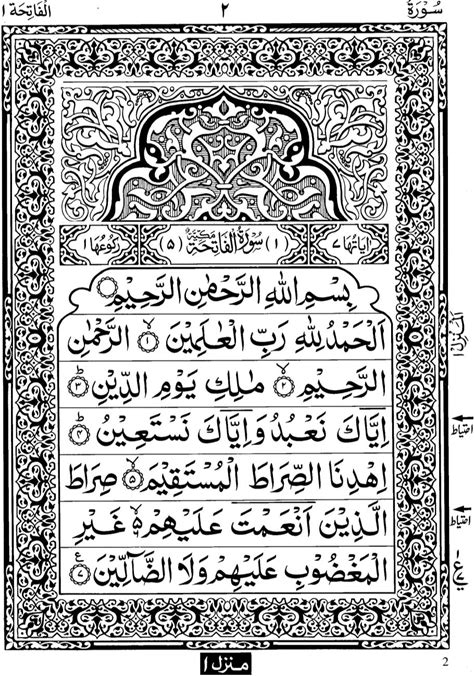 سُوْرَةُ ٢ اَلْفَاتِحَة ١
اٰيَاتُهَا ٧ (١) سُوْرَةُ الْفَاتِحَةِ مَكِّيَّةٌ (٥) رُكُوْعُهَا ١
بِسْمِ اللّٰهِ الرَّحْمٰنِ الرَّحِيْمِ
اَلْحَمْدُ لِلّٰهِ رَبِّ الْعٰلَمِيْنَ ۙ﴿١﴾ الرَّحْمٰنِ
الرَّحِيْمِ ۙ﴿٢﴾ مٰلِكِ يَوْمِ الدِّيْنِ ؕ﴿٣﴾
اِيَّاكَ نَعْبُدُ وَاِيَّاكَ نَسْتَعِيْنُ ؕ﴿٤﴾
اِهْدِنَا الصِّرَاطَ الْمُسْتَقِيْمَ ۙ﴿٥﴾ صِرَاطَ
الَّذِيْنَ اَنْعَمْتَ عَلَيْهِمْ ۙ۵ غَيْرِ
الْمَغْضُوْبِ عَلَيْهِمْ وَلَا الضَّآلِّيْنَ ﴿٧﴾ ع
المنزل ١
احتیاط
احتیاط
منزل ١
2